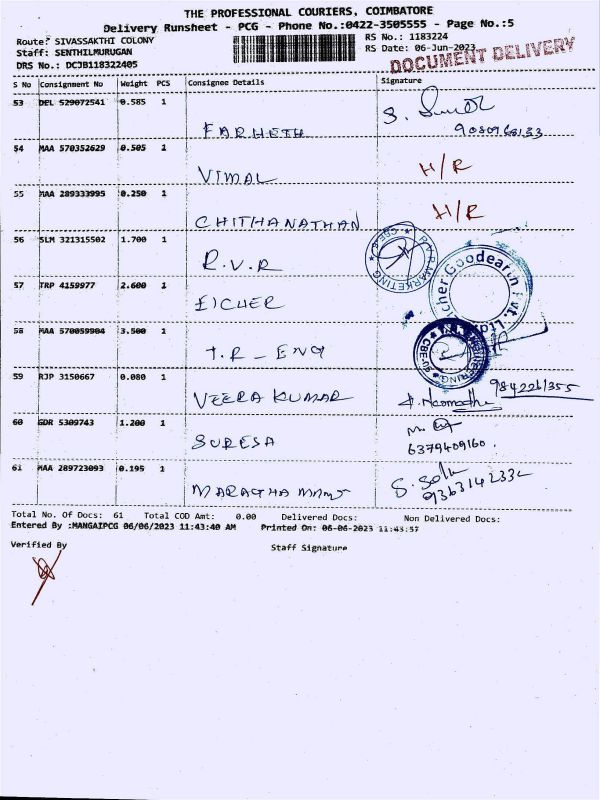 THE PROFESSIONAL COURIERS, COIMBATORE
Delivery Runsheet - PCG - Phone No.:0422-3505555 - Page No.:5
Route: SIVASSAKTHI COLONY
RS No.: 1183224
Staff: SENTHILMURUGAN
RS Date: 06-Jun-2023
DRS No.: DCJB118322405
DOCUMENT DELIVERY
S No Consignment No Weight PCS Consignee Details Signature
53 DEL 529072541 0.585 1
FARHETH
54 MAA 570352629 0.505 1
VIMAL H/R
55 MAA 289333995 0.250 1
CHITHANATHAN H/R
56 SLM 321315502 1.700 1
R.V.R
R.V.R MARKETING
57 TRP 4159977 2.600 1
EICHER
Eicher Goodearth Pvt. Lt
58 MAA 570059904 3.500 1
T.R - ENG
ENGINEERING
59 RJP 3150667 0.080 1
VEERA KUMAR
60 GDR 5309743 1.200 1
SURESA
6379409160.
61 MAA 289723093 0.195 1
Total No. Of Docs: 61 Total COD Amt: 0.00 Delivered Docs: Non Delivered Docs:
Entered By :MANGAIPCG 06/06/2023 11:43:40 AM Printed On: 06-06-2023 11:43:57
Verified By
Staff Signature